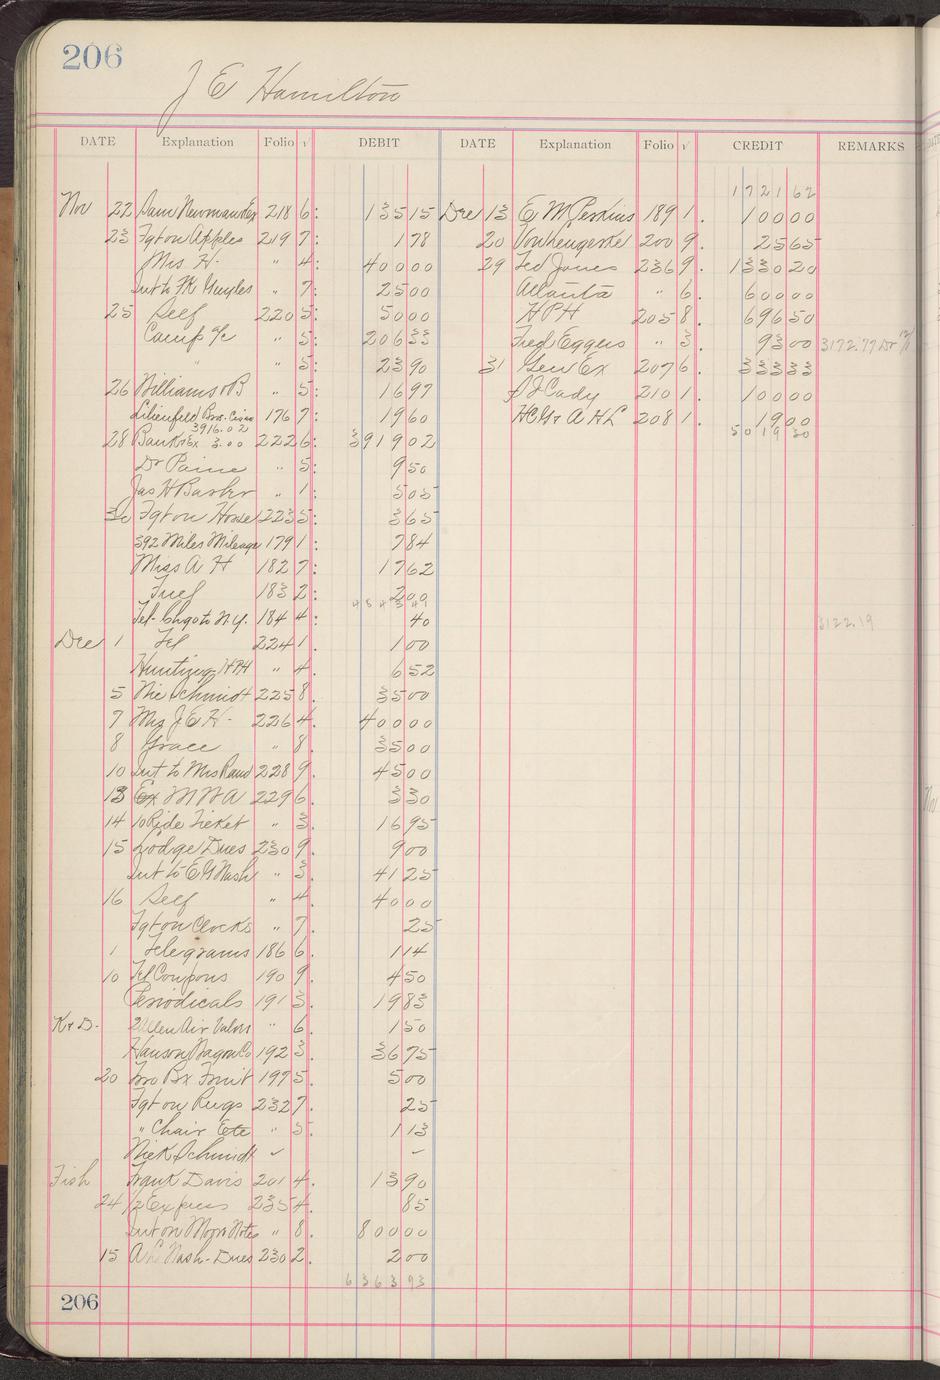 206
J E Hamilton
DATE Explanation Folio √ DEBIT DATE Explanation Folio √ CREDIT REMARKS
1721 62
Nov 22 Sam Newman Ex 218 6: 135 15 Dec 13 E. M. Perkins 189 1. 100 00
23 Fgt on Apples 219 7: 1 78 20 Vonhengerke 200 9. 25 65
Mrs. H. " 4: 400 00 29 Ted Jones 236 9. 1330 20
Int to FK " 7: 25 00 Atlanta " 6. 600 00
25 Self 220 5: 50 00 H P H 205 8. 696 50
Camp a/c " 5: 206 33 Fred Eggers " 3. 93 00 3172.77 Dr 12/1
" " 5: 23 90 31 Gen Ex 207 6. 333 33
26 Williams & B " 5: 16 97 J J Cady 210 1. 100 00
Lilienfeld Bros. 176 7: 19 60 HCY & A H L 208 1. 19 00
3916.02 5019 30
28 Bank & Ex 3.00 222 6: 3919 02
Dr Paine " 5: 9 50
Jas H Barker " 1: 5 05
30 Fgt on Horse 223 5: 3 65
392 Miles Mileage 179 1: 7 84
Miss A H 182 7: 17 62
Fuel 183 2: 2 00
4843 41
Tel. Chgo to N.Y. 184 4: 40 3122.19
Dec 1 Tel 224 1. 1 00
Hunting HPH " 4. 6 52
5 Nic Schmidt 225 8. 35 00
7 Mrs J E H. 226 4. 400 00
8 Grace " 8. 35 00
10 Int to Mrs Rand 228 9. 45 00
13 Ex M W A 229 6. 3 30
14 10 Ride Ticket " 3. 16 95
15 Lodge Dues 230 9. 9 00
Int to E G Nash " 3. 41 25
16 Self " 4. 40 00
Fgt on Clocks " 7. 25
1 Telegrams 186 6. 1 14
10 Tel Coupons 190 9. 4 50
Periodicals 191 3. 19 83
K & D. Air Valves " 6. 1 50
Hanson Wagon Co 192 3. 36 75
20 Two Bx Fruit 197 5. 5 00
Fgt on Rugs 232 7. 25
" Chair Etc " 5. 1 13
Nick Schmidt ✓ –
Fish Frank Davis 201 4. 13 90
24 1/2 Express 235 4. 85
Int on Notes " 8. 800 00
15 A. L. Nash - Dues 230 2. 2 00
6363 93
206